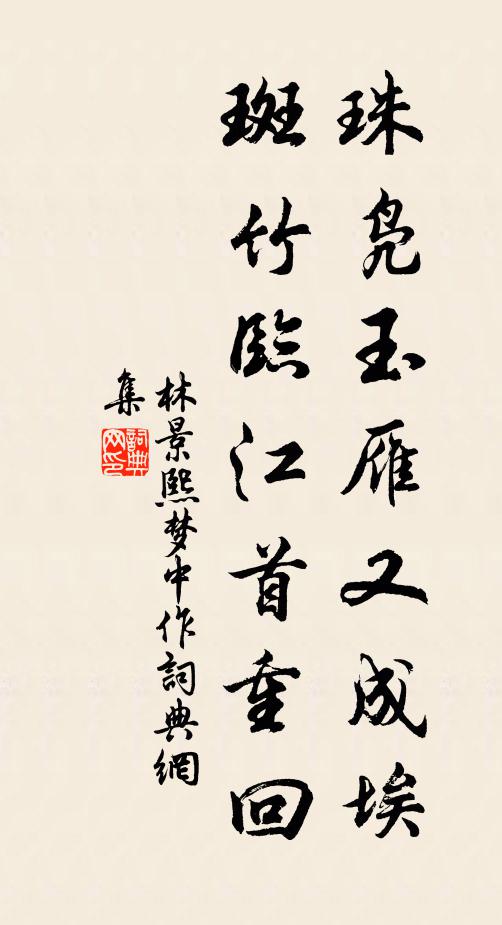 珠凫玉雁又成埃
斑竹臨江首重回
林景熙梦中作詞典網
集
詞典网印